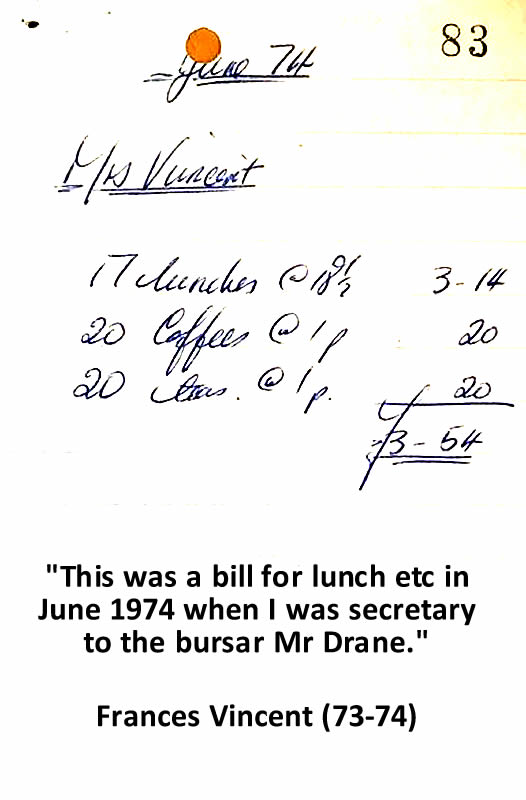 83
June 74
Mrs Vincent
17 lunches @ 18½ 3-14
20 Coffees @ 1p 20
20 teas. @ 1p. 20
£3-54
"This was a bill for lunch etc in
June 1974 when I was secretary
to the bursar Mr Drane."
Frances Vincent (73-74)